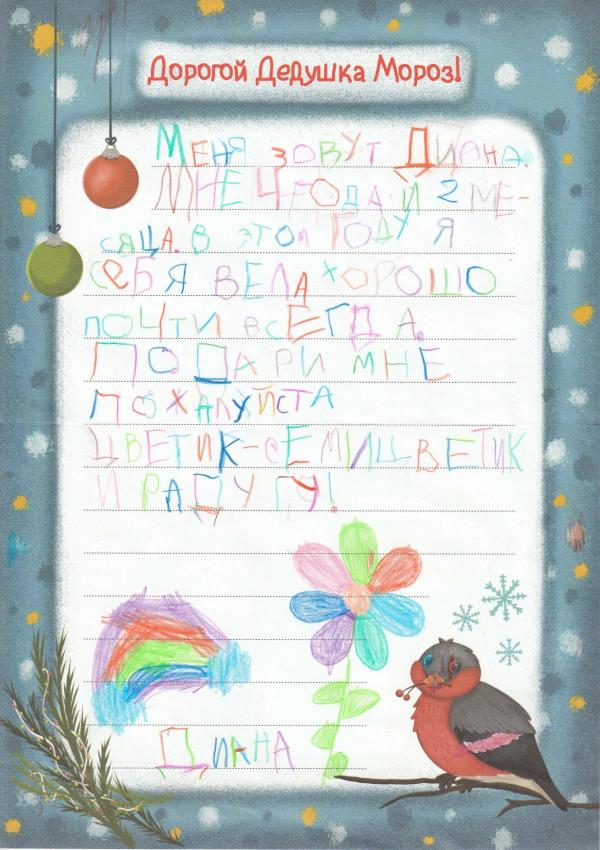 Дорогой Дедушка Мороз!
Меня зовут Диана.
МНЕ 4 ГОДА И 2 МЕ-
СЯЦА. В ЭТОМ ГОДУ Я
СЕБЯ ВЕЛА ХОРОШО
ПОЧТИ ВСЕГДА.
ПОДАРИ МНЕ
ПОЖАЛУЙСТА
ЦВЕТИК-СЕМИЦВЕТИК
И РАДУГУ!
ДИАНА